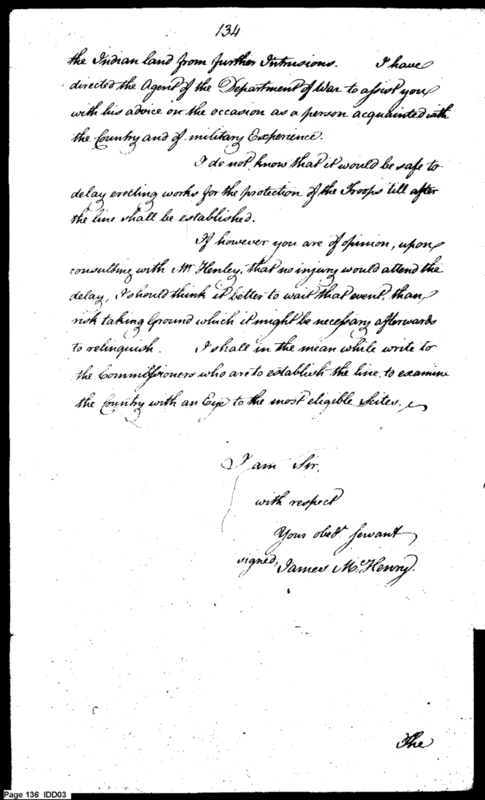 134
the Indian land from further Intrusions. I have
directed the Agent of the Department of War to assist you
with his advice on the occasion as a person acquainted with
the Country and of military Experience.
I do not know that it would be safe to
delay erecting works for the protection of the Troops till after
the line shall be established.
If however you are of opinion, upon
consulting with Mr Henley, that no injury would attend the
delay, I should think it better to wait that event, than
risk taking Ground which it might be necessary afterwards
to relinquish. I shall in the mean while write to
the Commissioners who are to establish the line to examine
the Country with an Eye to the most eligible Scites.
I am Sir,
with respect
Your obedt servant
signed, James McHenry.
The
Page 136 IDD03